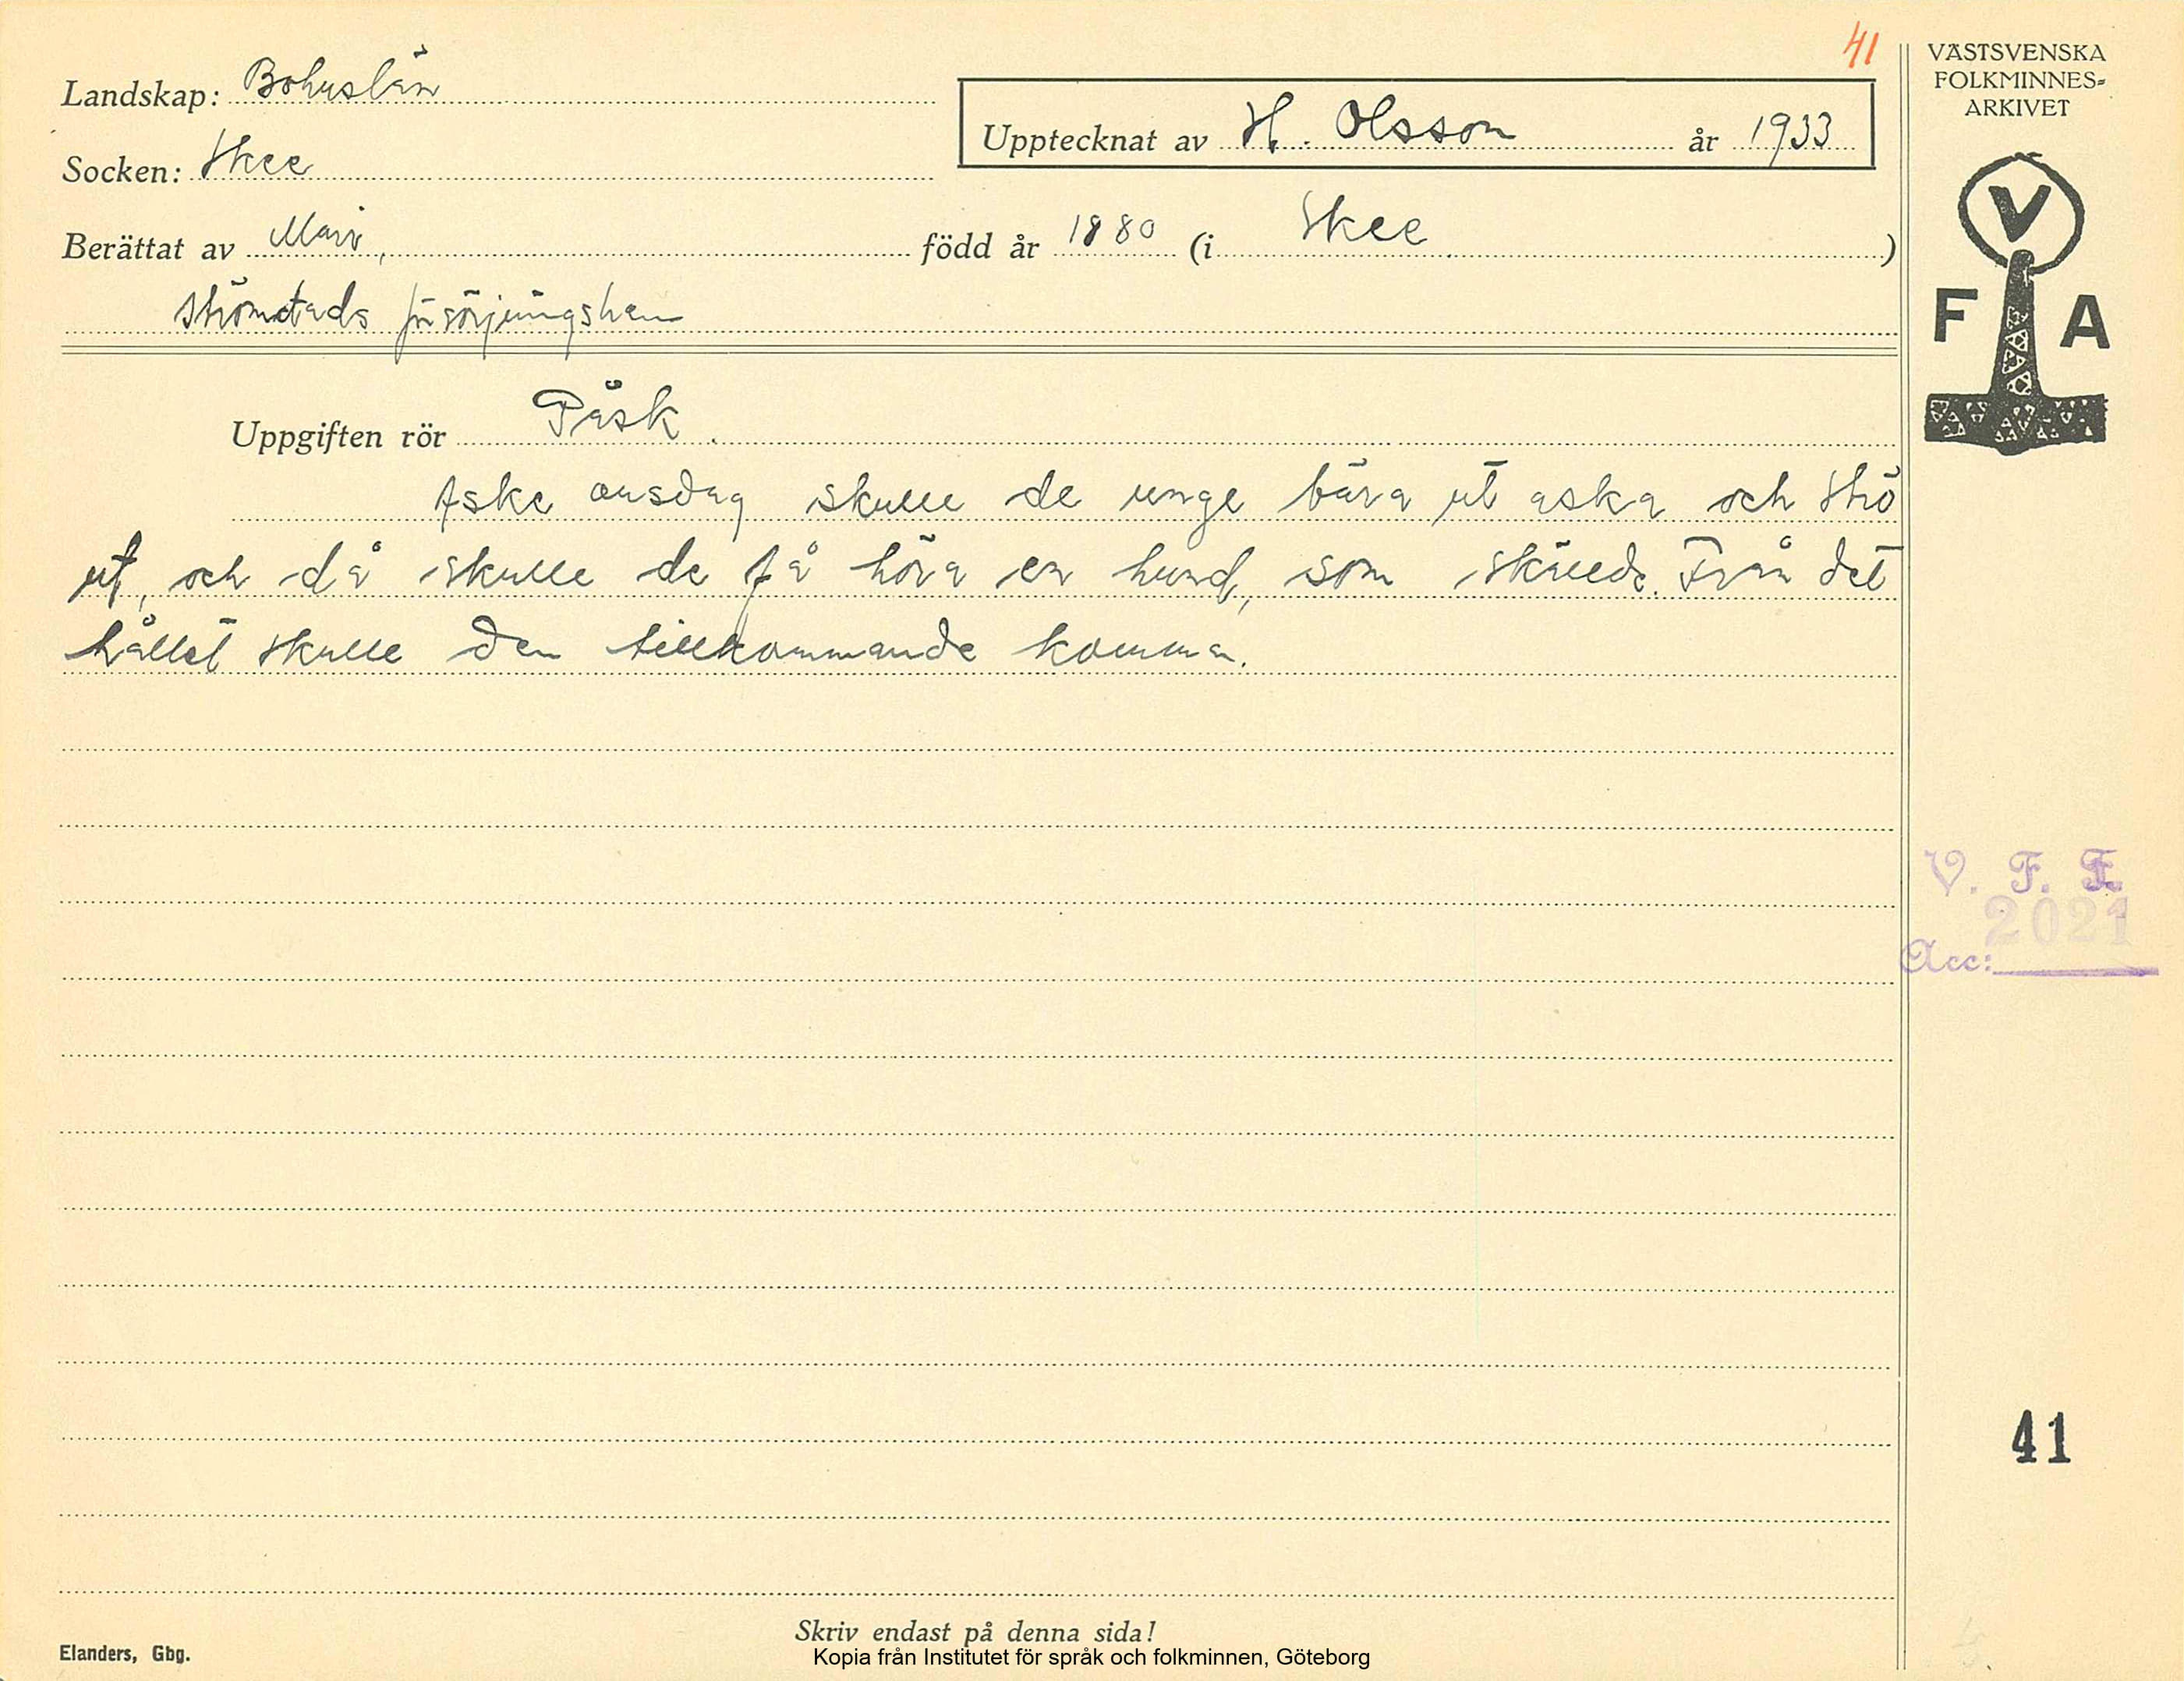 41
Landskap: Bohuslän
Upptecknat av H. Olsson år 1933
Socken: Skee
Berättat av Mari, född år 1880 (i Skee)
Strömstads försörjningshem
Uppgiften rör Påsk.
Aske onsdag skulle de unge bära ut aska och strö
ut, och då skulle de få höra en hund, som skällde. Från det
hållet skulle den tillkommande komma.
Skriv endast på denna sida!
Elanders, Gbg.
Kopia från Institutet för språk och folkminnen, Göteborg
VÄSTSVENSKA
FOLKMINNES=
ARKIVET
V
F A
V. F. F.
2021
Acc:
41